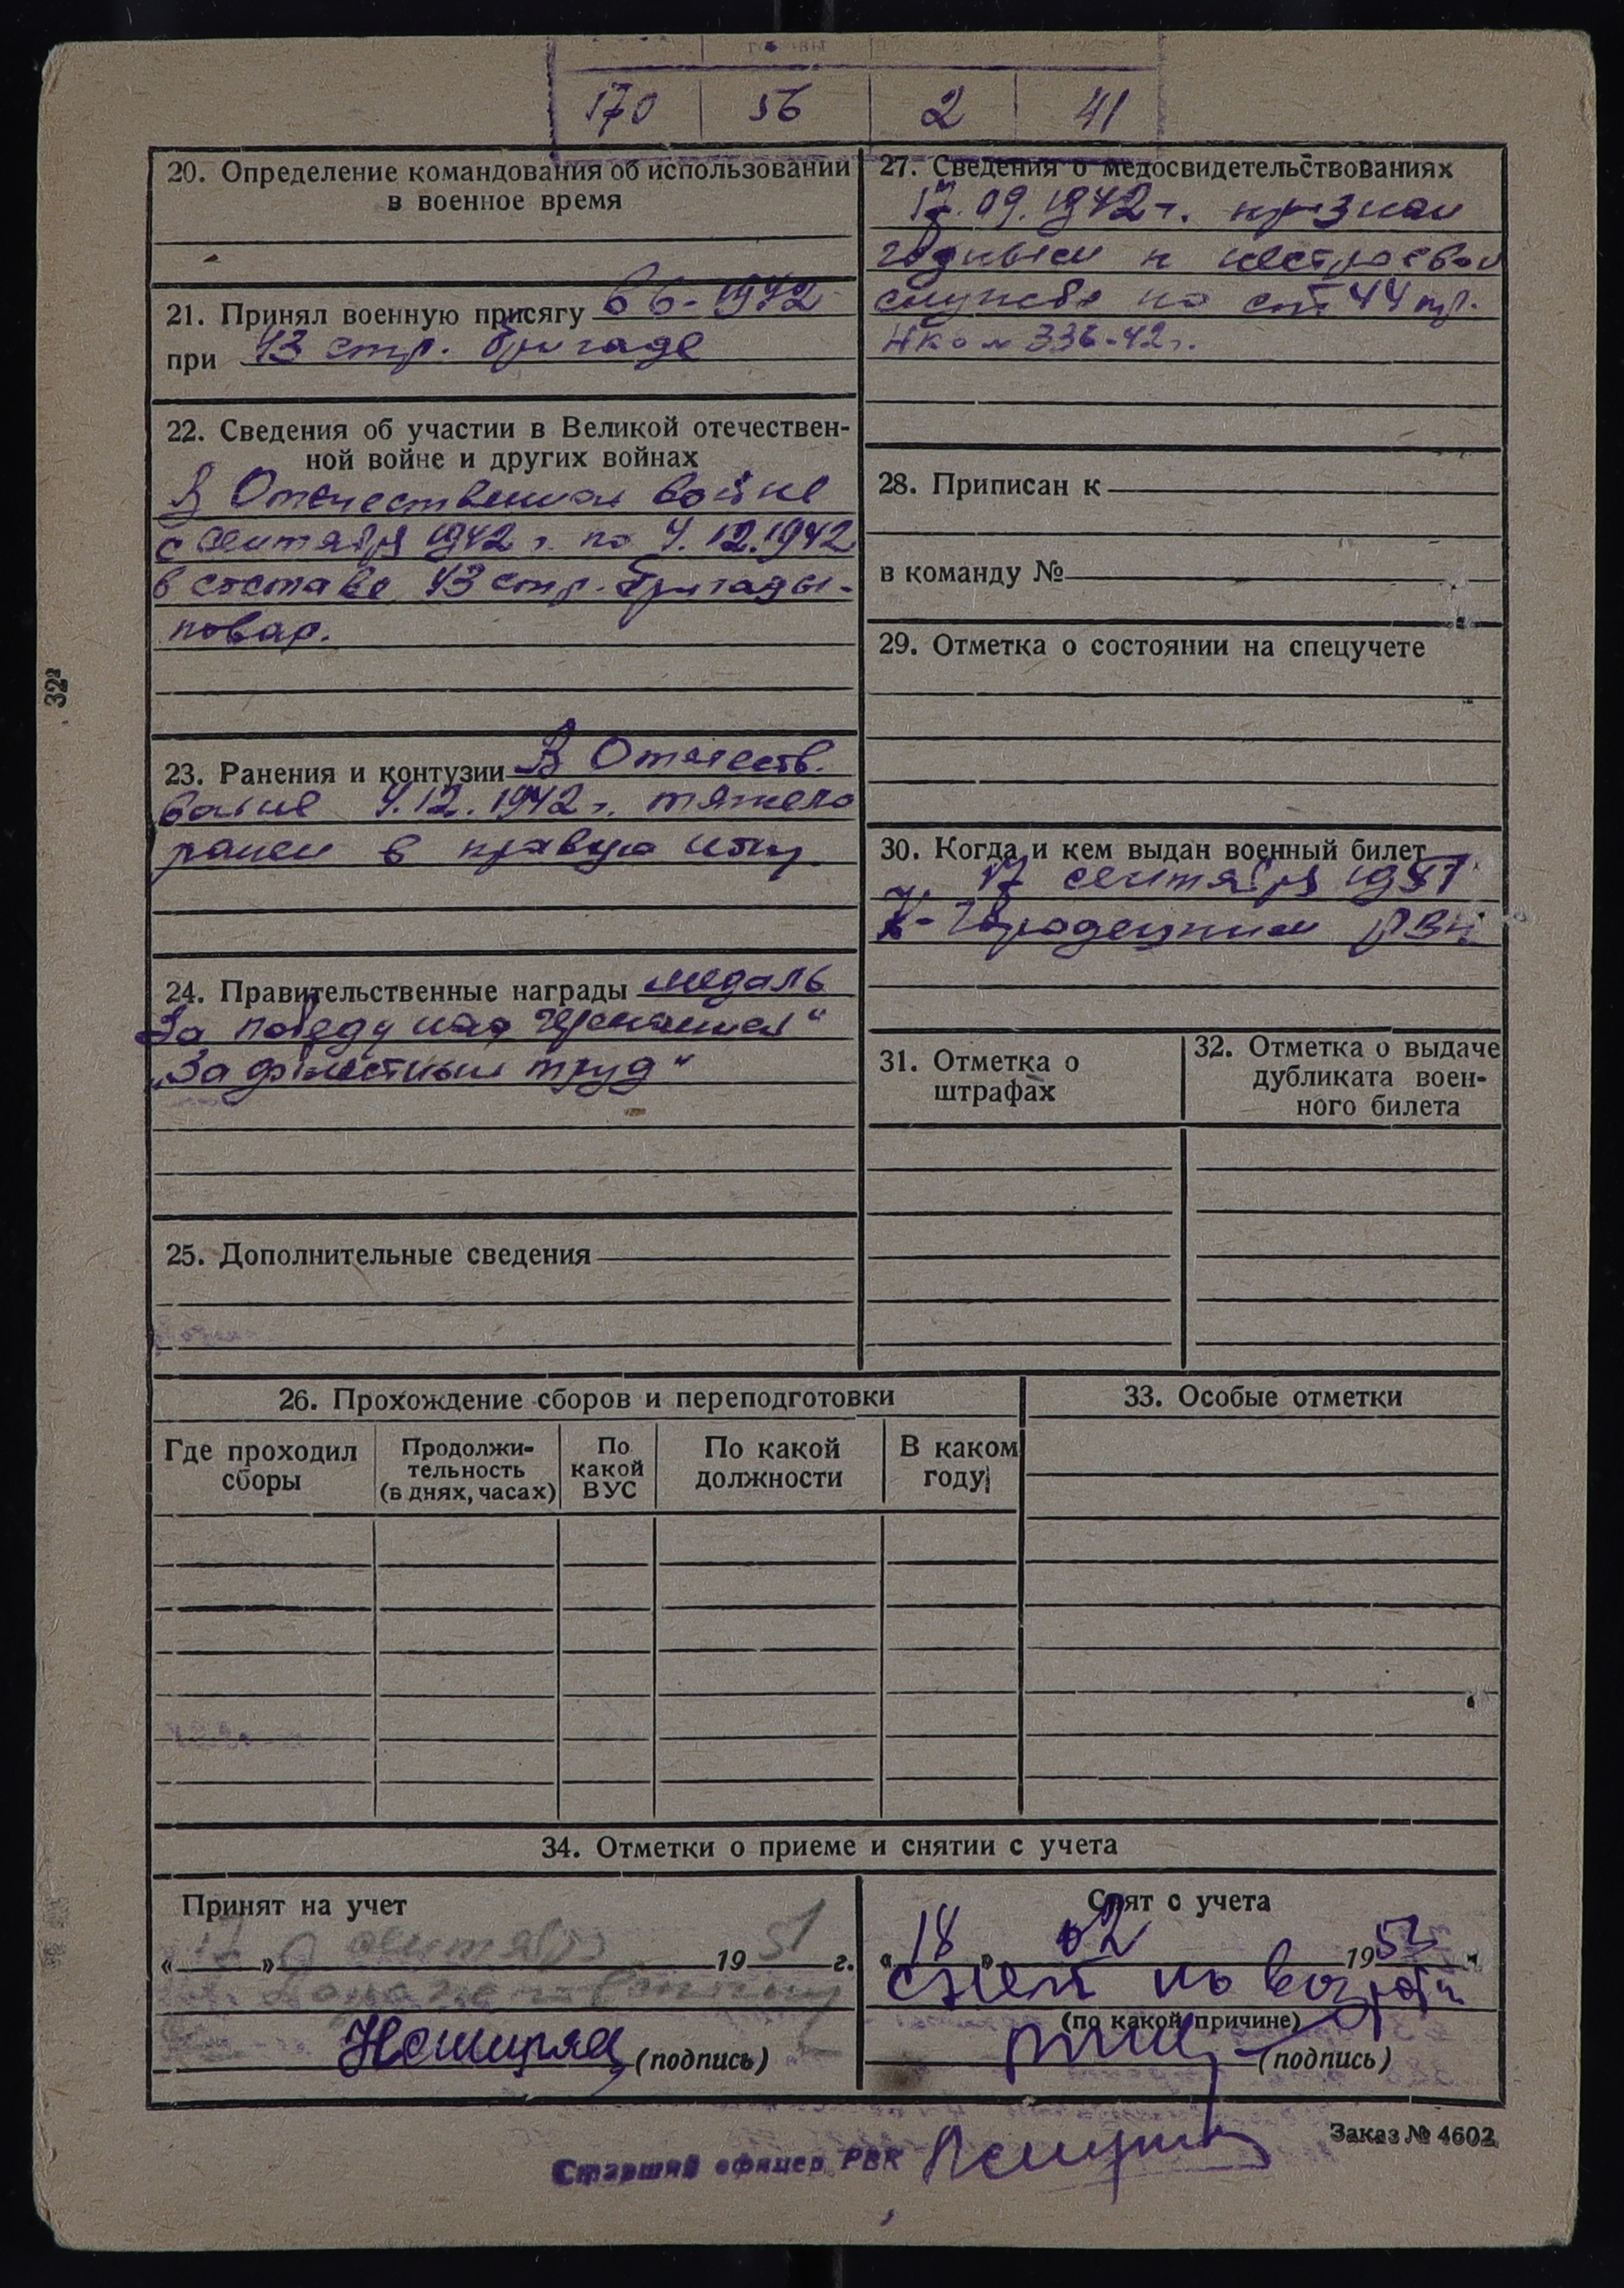 170 56 2 41
20. Определение командования об использовании
в военное время
21. Принял военную присягу в 6-1942
при 43 стр. бригаде
22. Сведения об участии в Великой отечествен-
ной войне и других войнах
В Отечественной войне
с сентября 1942 г. по 4.12.1942
в составе 43 стр. бригады-
повар.
23. Ранения и контузии В Отечеств.
войне 4.12.1942 г. тяжело
ранен в правую ногу
24. Правительственные награды медаль
За победу над Германией"
„За доблестный труд"
25. Дополнительные сведения
27. Сведения о медосвидетельствованиях
17.09.1942 г. признан
годным к нестроевой
службе по ст 44 пр.
НКО № 336-42 г.
28. Приписан к
в команду №
29. Отметка о состоянии на спецучете
30. Когда и кем выдан военный билет
17 сентября 1951
К-Городецким РВК
31. Отметка о
штрафах
32. Отметка о выдаче
дубликата воен-
ного билета
26. Прохождение сборов и переподготовки
Где проходил
сборы
Продолжи-
тельность
(в днях, часах)
По
какой
ВУС
По какой
должности
В каком
году
33. Особые отметки
34. Отметки о приеме и снятии с учета
Принят на учет
«17» сентября 1951 г.
(подпись)
Снят с учета
«18» 02 1952 г.
снят по возрасту
(по какой причине)
(подпись)
Заказ № 4602
Старший офицер РВК
32²